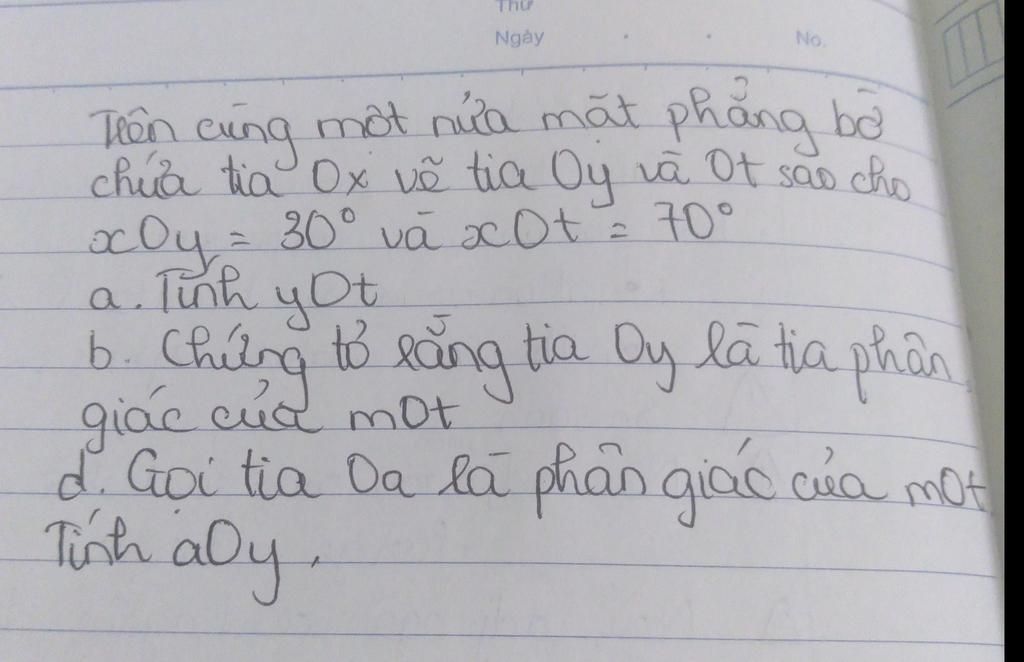 Thứ
Ngày
No.
Trên cùng một nửa mặt phẳng bờ
chứa tia Ox vẽ tia Oy và Ot sao cho
xOy = 30° và xOt = 70°
a. Tính yOt
b. Chứng tỏ rằng tia Oy là tia phân
giác của mOt
d. Gọi tia Oa là phân giác của mOt
Tính aOy.